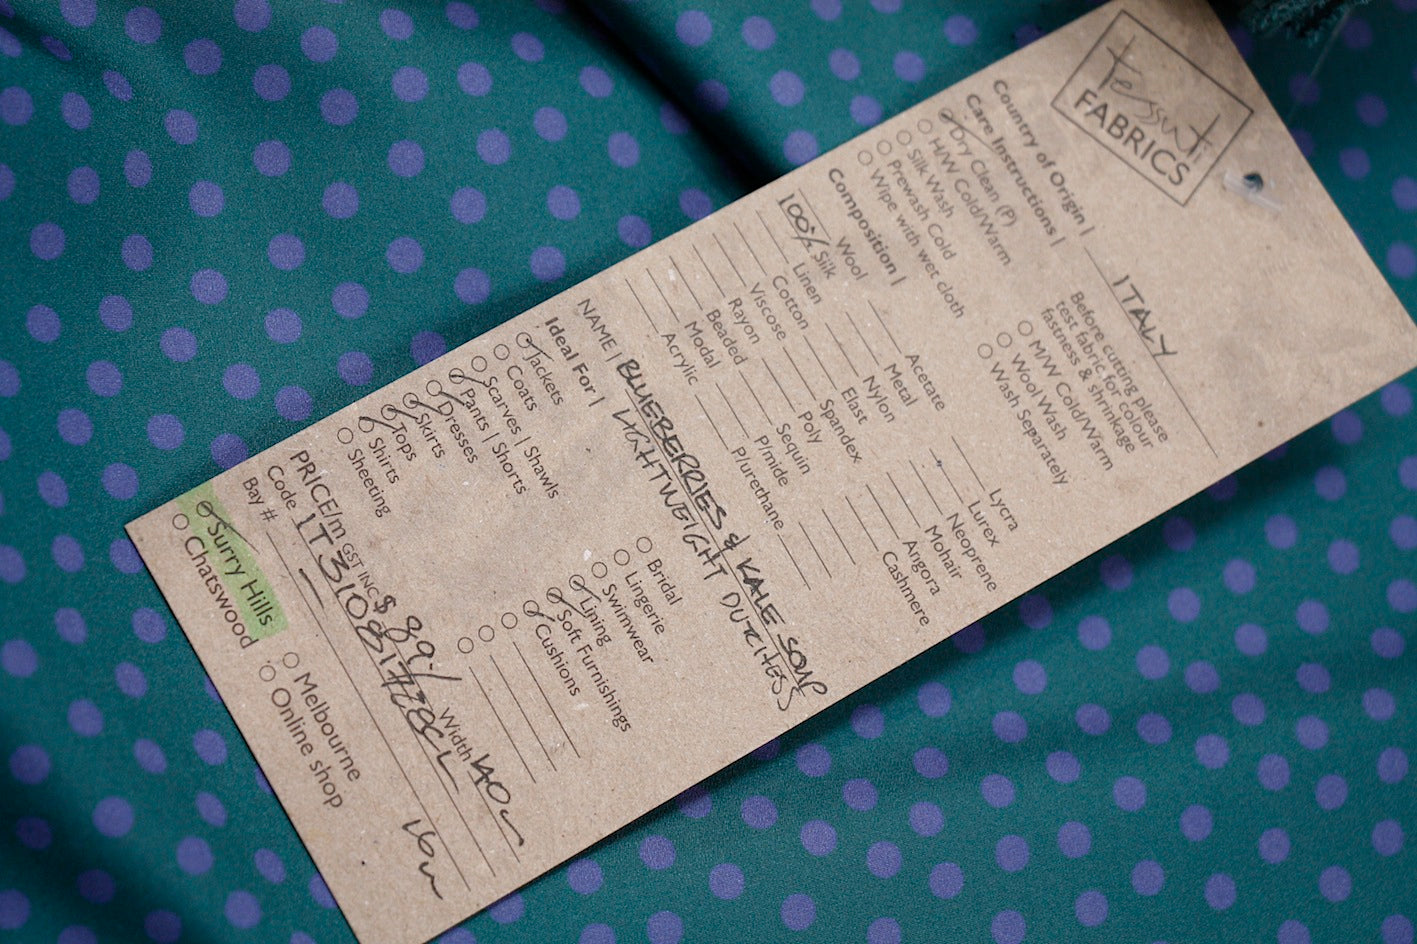 tessuti
FABRICS
Country of Origin | ITALY
Care Instructions |
Dry Clean (P)
H/W Cold/Warm
Silk Wash
Prewash Cold
Wipe with wet cloth
Before cutting please
test fabric for colour
fastness & shrinkage
M/W Cold/Warm
Wool Wash
Wash Separately
Composition |
Wool
100% Silk
Linen
Cotton
Viscose
Rayon
Beaded
Modal
Acrylic
Acetate
Metal
Nylon
Elast
Spandex
Poly
Sequin
P/mide
P/urethane
Lycra
Lurex
Neoprene
Mohair
Angora
Cashmere
NAME | BLUEBERRIES & KALE SOUP
LIGHTWEIGHT DUTCHESS
Ideal For |
Jackets
Coats
Scarves | Shawls
Pants | Shorts
Dresses
Skirts
Tops
Shirts
Sheeting
Bridal
Lingerie
Swimwear
Lining
Soft Furnishings
Cushions
PRICE/m GST INC $ 89 Width 140
Code
Bay #
Surry Hills
Chatswood
Melbourne
Online shop